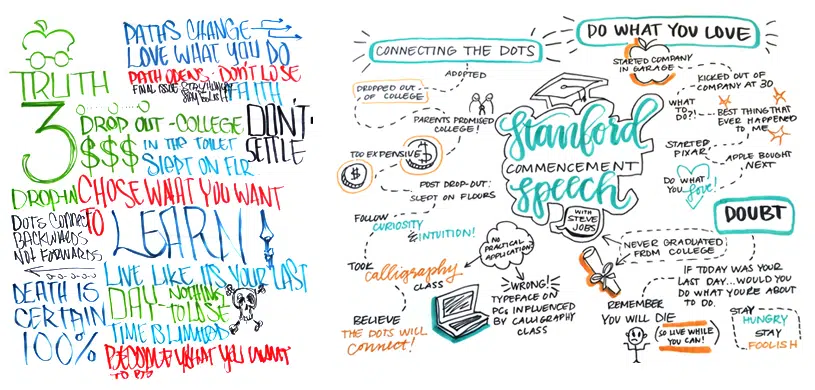 TRUTH
3
PATHS CHANGE
LOVE WHAT YOU DO
PATH OPENS - DON'T LOSE
FAITH
FINAL ISSUE STAY HUNGRY
STAY FOOLISH
DROP OUT - COLLEGE
$$$ IN THE TOILET
SLEPT ON FLR
DON'T
SETTLE
DROP-IN
CHOSE WHAT YOU WANT
TO
LEARN!
DOTS CONNECT
BACKWARDS
NOT FORWARDS
LIVE LIKE IT'S YOUR LAST
DAY - NOTHING
TO LOSE
DEATH IS
CERTAIN
100%
TIME IS LIMITED
BECOME WHAT YOU WANT
TO BE
CONNECTING THE DOTS
ADOPTED
DROPPED OUT
OF COLLEGE
PARENTS PROMISED
COLLEGE!
TOO EXPENSIVE
$
$
POST DROP-OUT:
SLEPT ON FLOORS
FOLLOW
CURIOSITY
& INTUITION!
TOOK
Calligraphy
CLASS
NO
PRACTICAL
APPLICATION?
WRONG!
TYPEFACE ON
PCs INFLUENCED
BY CALLIGRAPHY
CLASS
BELIEVE
THE DOTS WILL
Connect!
Stanford
COMMENCEMENT
Speech
WITH
STEVE
JOBS
DO WHAT YOU LOVE
STARTED COMPANY
IN GARAGE
KICKED OUT OF
COMPANY AT 30
WHAT
TO
DO?!
BEST THING THAT
EVER HAPPENED
TO ME
STARTED
PIXAR
APPLE BOUGHT
NEXT
DO WHAT
YOU Love!
DOUBT
NEVER GRADUATED
FROM COLLEGE
IF TODAY WAS YOUR
LAST DAY...WOULD YOU
DO WHAT YOU'RE ABOUT
TO DO.
REMEMBER
YOU WILL DIE
(SO LIVE WHILE
YOU CAN!)
STAY
HUNGRY
STAY
FOOLISH